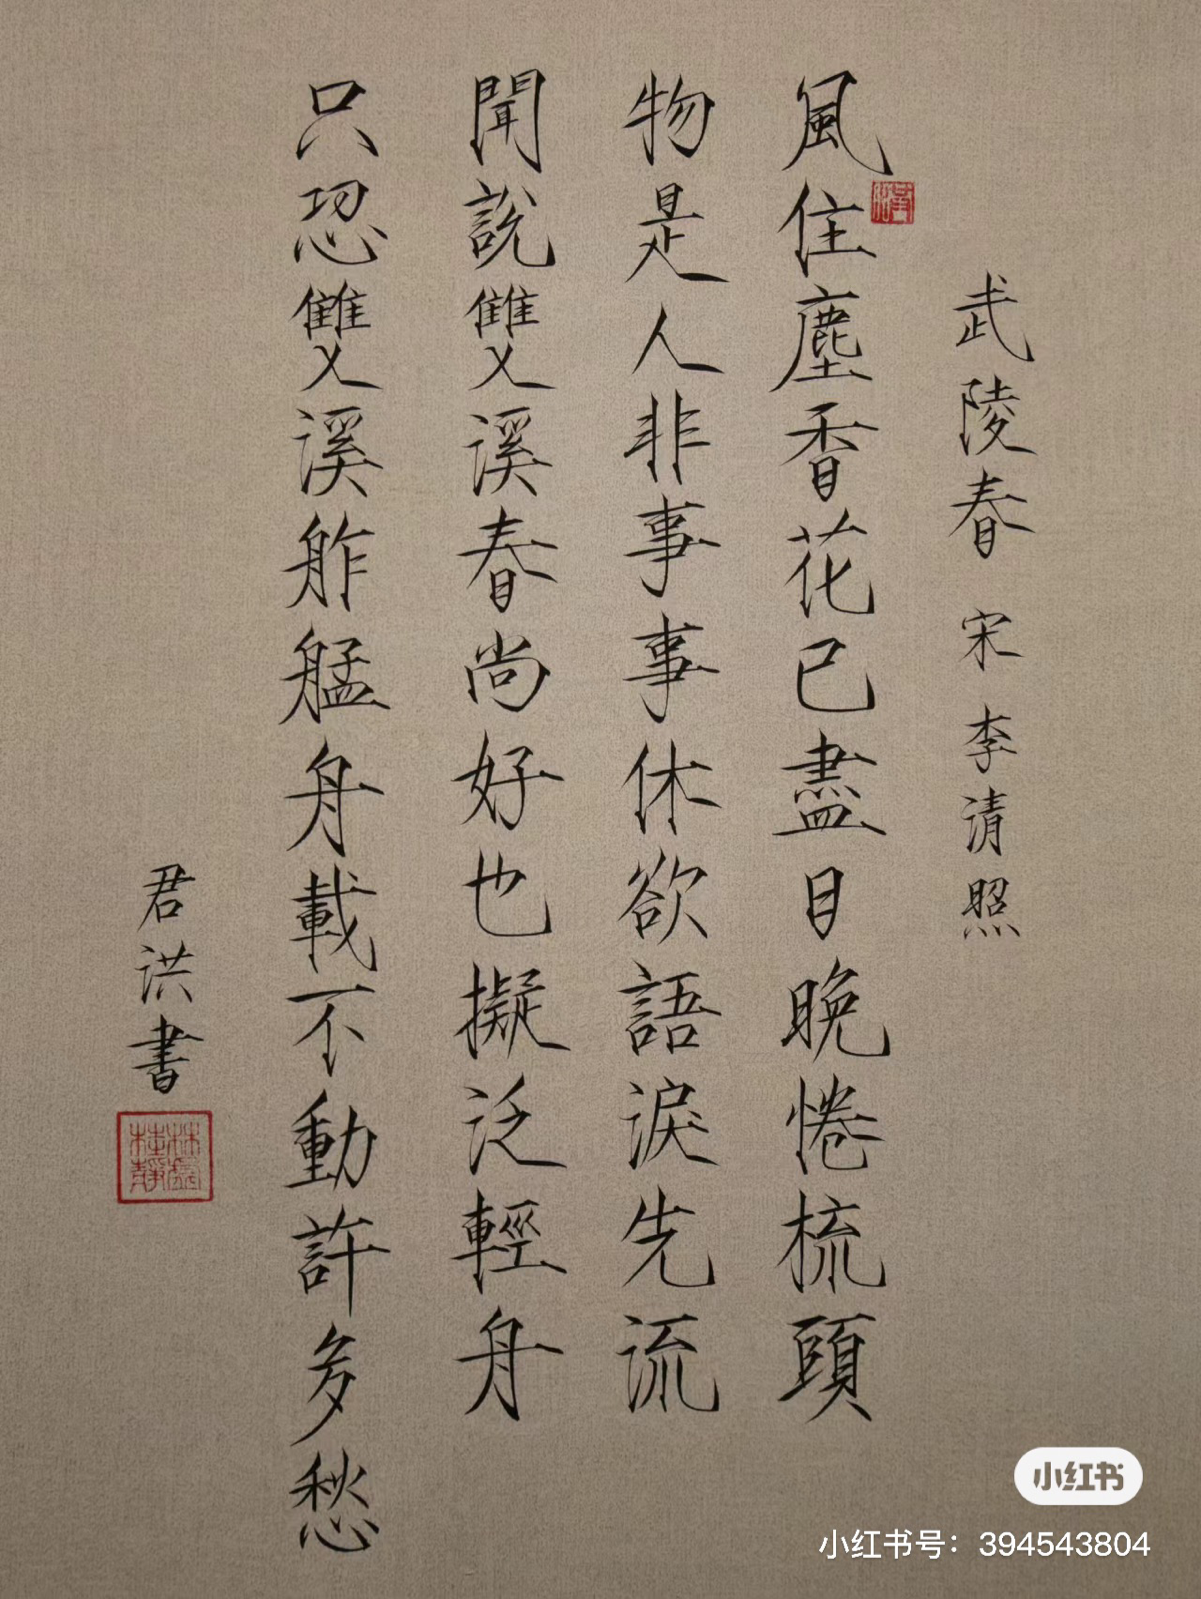 武陵春 宋 李清照
風住塵香花已盡日晚惓梳頭
物是人非事事休欲語淚先流
聞說雙溪春尚好也擬泛輕舟
只恐雙溪舴艋舟載不動許多愁
君洪書
小红书
小红书号：394543804